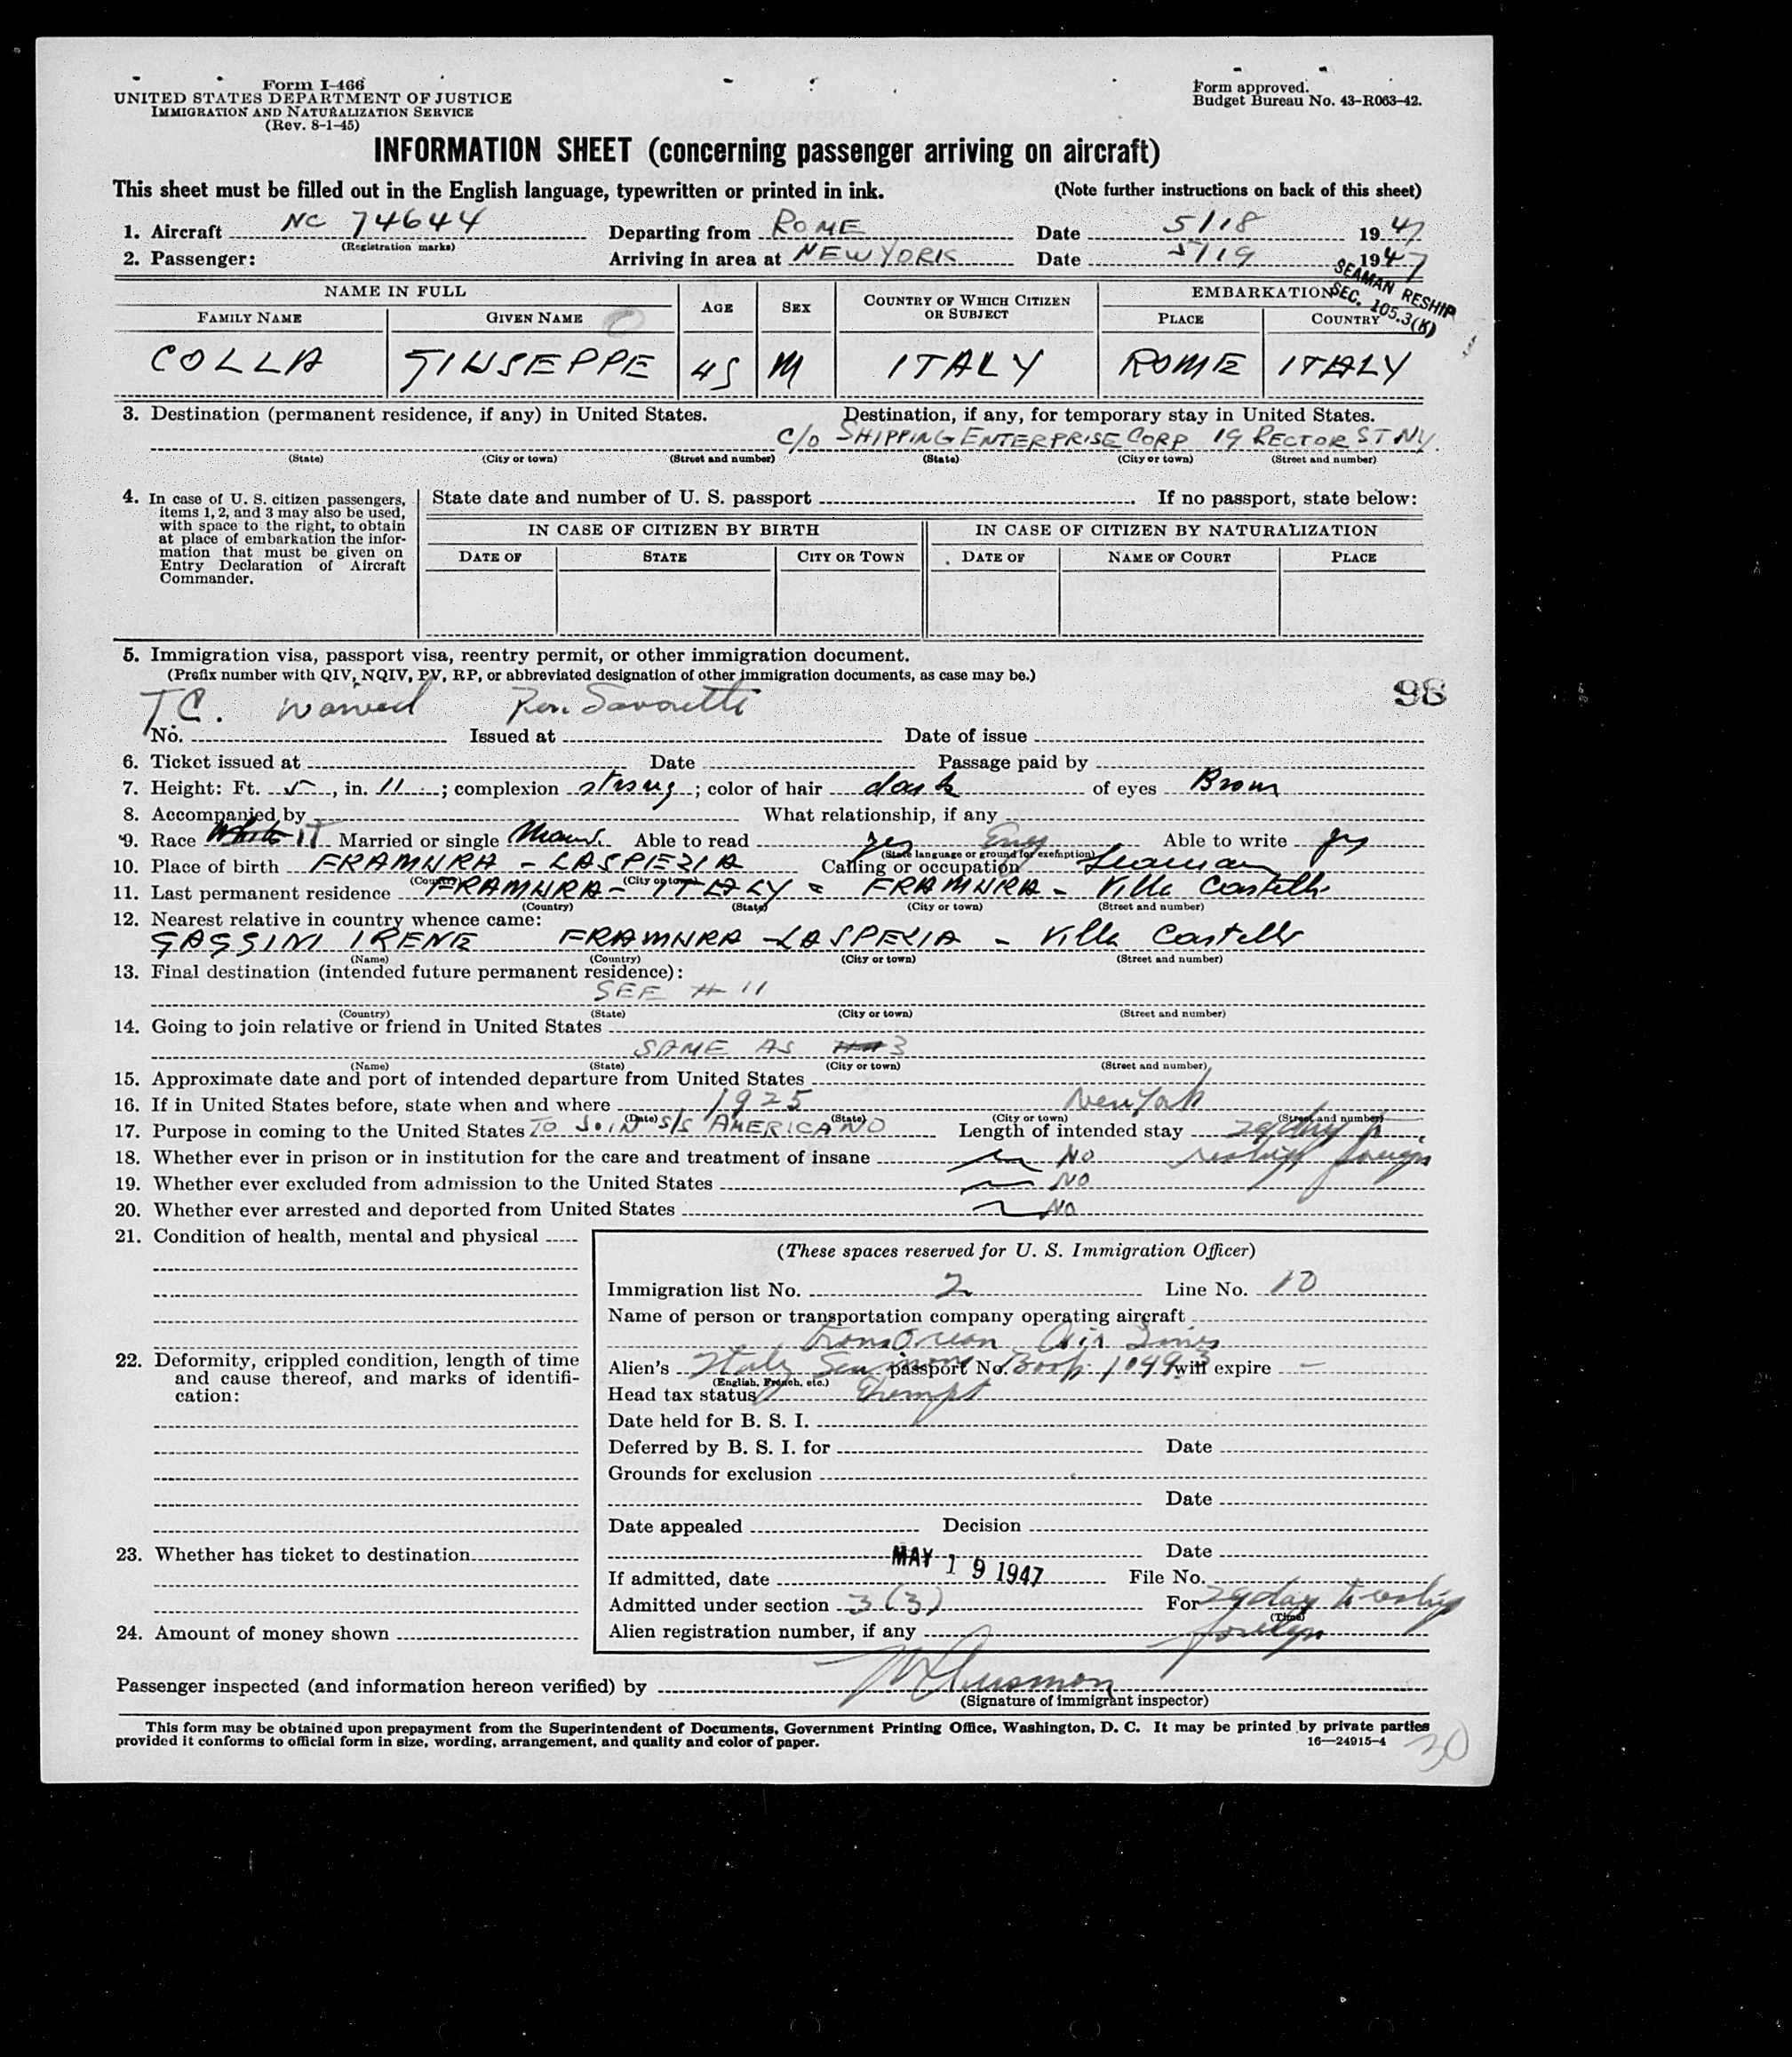 Form I-466
UNITED STATES DEPARTMENT OF JUSTICE
IMMIGRATION AND NATURALIZATION SERVICE
(Rev. 8-1-45)
Form approved.
Budget Bureau No. 43-R063-42.
INFORMATION SHEET (concerning passenger arriving on aircraft)
This sheet must be filled out in the English language, typewritten or printed in ink. (Note further instructions on back of this sheet)
1. Aircraft NC 74644 Departing from ROME Date 5/18 1947
(Registration marks)
2. Passenger: Arriving in area at NEW YORK Date 5/19 1947
SEAMAN RESHIP
SEC. 105.3(K)
NAME IN FULL AGE SEX COUNTRY OF WHICH CITIZEN OR SUBJECT EMBARKATION
FAMILY NAME GIVEN NAME PLACE COUNTRY
COLLA GIUSEPPE 45 M ITALY ROME ITALY
3. Destination (permanent residence, if any) in United States. Destination, if any, for temporary stay in United States.
C/O SHIPPING ENTERPRISE CORP 19 RECTOR ST NY.
(State) (City or town) (Street and number) (State) (City or town) (Street and number)
4. In case of U. S. citizen passengers,
items 1, 2, and 3 may also be used,
with space to the right, to obtain
at place of embarkation the infor-
mation that must be given on
Entry Declaration of Aircraft
Commander.
State date and number of U. S. passport . If no passport, state below:
IN CASE OF CITIZEN BY BIRTH IN CASE OF CITIZEN BY NATURALIZATION
DATE OF STATE CITY OR TOWN DATE OF NAME OF COURT PLACE
5. Immigration visa, passport visa, reentry permit, or other immigration document.
(Prefix number with QIV, NQIV, PV, RP, or abbreviated designation of other immigration documents, as case may be.)
98
T.C. waived
No. Issued at Date of issue
6. Ticket issued at Date Passage paid by
7. Height: Ft. 5, in. 11; complexion strong; color of hair dark of eyes Brown
8. Accompanied by What relationship, if any
9. Race White IT Married or single Able to read yes Eng Able to write yes
(State language or ground for exemption)
10. Place of birth FRAMURA - LASPEZIA Calling or occupation Seaman
(Country) (City or town)
11. Last permanent residence FRAMURA - ITALY = FRAMURA - Villa Castello
(Country) (State) (City or town) (Street and number)
12. Nearest relative in country whence came:
GAGGINI IRENE FRAMURA - LASPEZIA - Villa Castello
(Name) (Country) (City or town) (Street and number)
13. Final destination (intended future permanent residence):
SEE # 11
(Country) (State) (City or town) (Street and number)
14. Going to join relative or friend in United States
SAME AS 3
(Name) (State) (City or town) (Street and number)
15. Approximate date and port of intended departure from United States
16. If in United States before, state when and where 1925 New York
(Date) (State) (City or town) (Street and number)
17. Purpose in coming to the United States TO JOIN S/S AMERICANO Length of intended stay 29 days to
18. Whether ever in prison or in institution for the care and treatment of insane NO reship foreign
19. Whether ever excluded from admission to the United States NO
20. Whether ever arrested and deported from United States NO
21. Condition of health, mental and physical
22. Deformity, crippled condition, length of time
and cause thereof, and marks of identifi-
cation:
23. Whether has ticket to destination
24. Amount of money shown
(These spaces reserved for U. S. Immigration Officer)
Immigration list No. 2 Line No. 10
Name of person or transportation company operating aircraft
TransOcean Air Lines
Alien's Italy Seamans passport No. Book 10493 will expire —
(English, French, etc.)
Head tax status Exempt
Date held for B. S. I.
Deferred by B. S. I. for Date
Grounds for exclusion
Date
Date appealed Decision
Date
If admitted, date MAY 19 1947 File No.
Admitted under section 3(3) For 29 days to reship
(Time)
Alien registration number, if any foreign
Passenger inspected (and information hereon verified) by
(Signature of immigrant inspector)
This form may be obtained upon prepayment from the Superintendent of Documents, Government Printing Office, Washington, D. C. It may be printed by private parties
provided it conforms to official form in size, wording, arrangement, and quality and color of paper. 16—24915-4
30